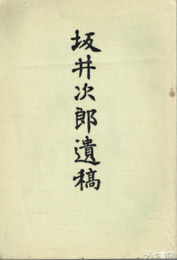 坂井次郎遺稿